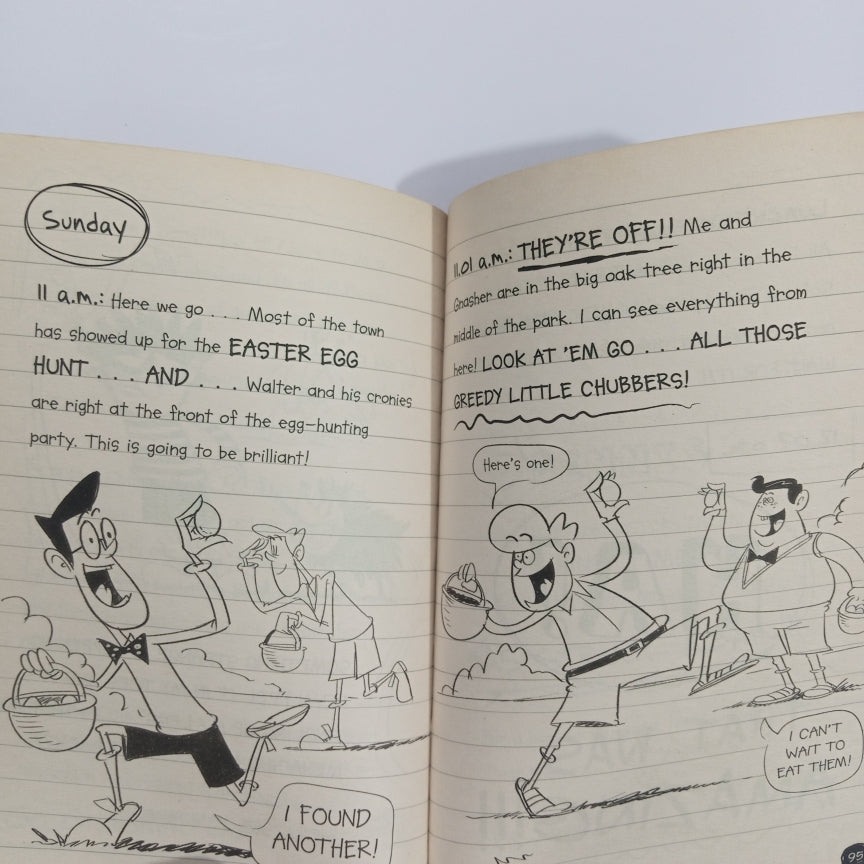 Sunday
11 a.m.: Here we go . . . Most of the town
has showed up for the EASTER EGG
HUNT . . . AND . . . Walter and his cronies
are right at the front of the egg-hunting
party. This is going to be brilliant!
I FOUND
ANOTHER!
11.01 a.m.: THEY'RE OFF!! Me and
Gnasher are in the big oak tree right in the
middle of the park. I can see everything from
here! LOOK AT 'EM GO . . . ALL THOSE
GREEDY LITTLE CHUBBERS!
Here's one!
I CAN'T
WAIT TO
EAT THEM!
95